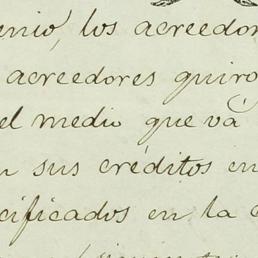 enio, los acreedor
acreedores quiro
el medio que vá
n sus créditos en
cificados en la